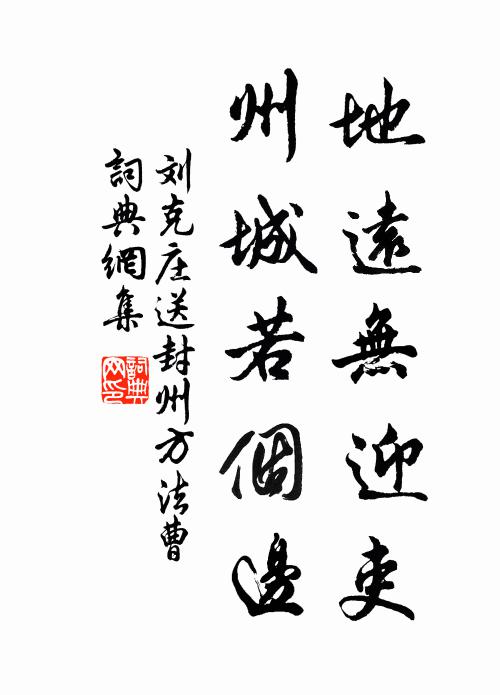 地遠無迎吏
州城若個邊
刘克庄送封州方法曹
詞典網集
詞典網印